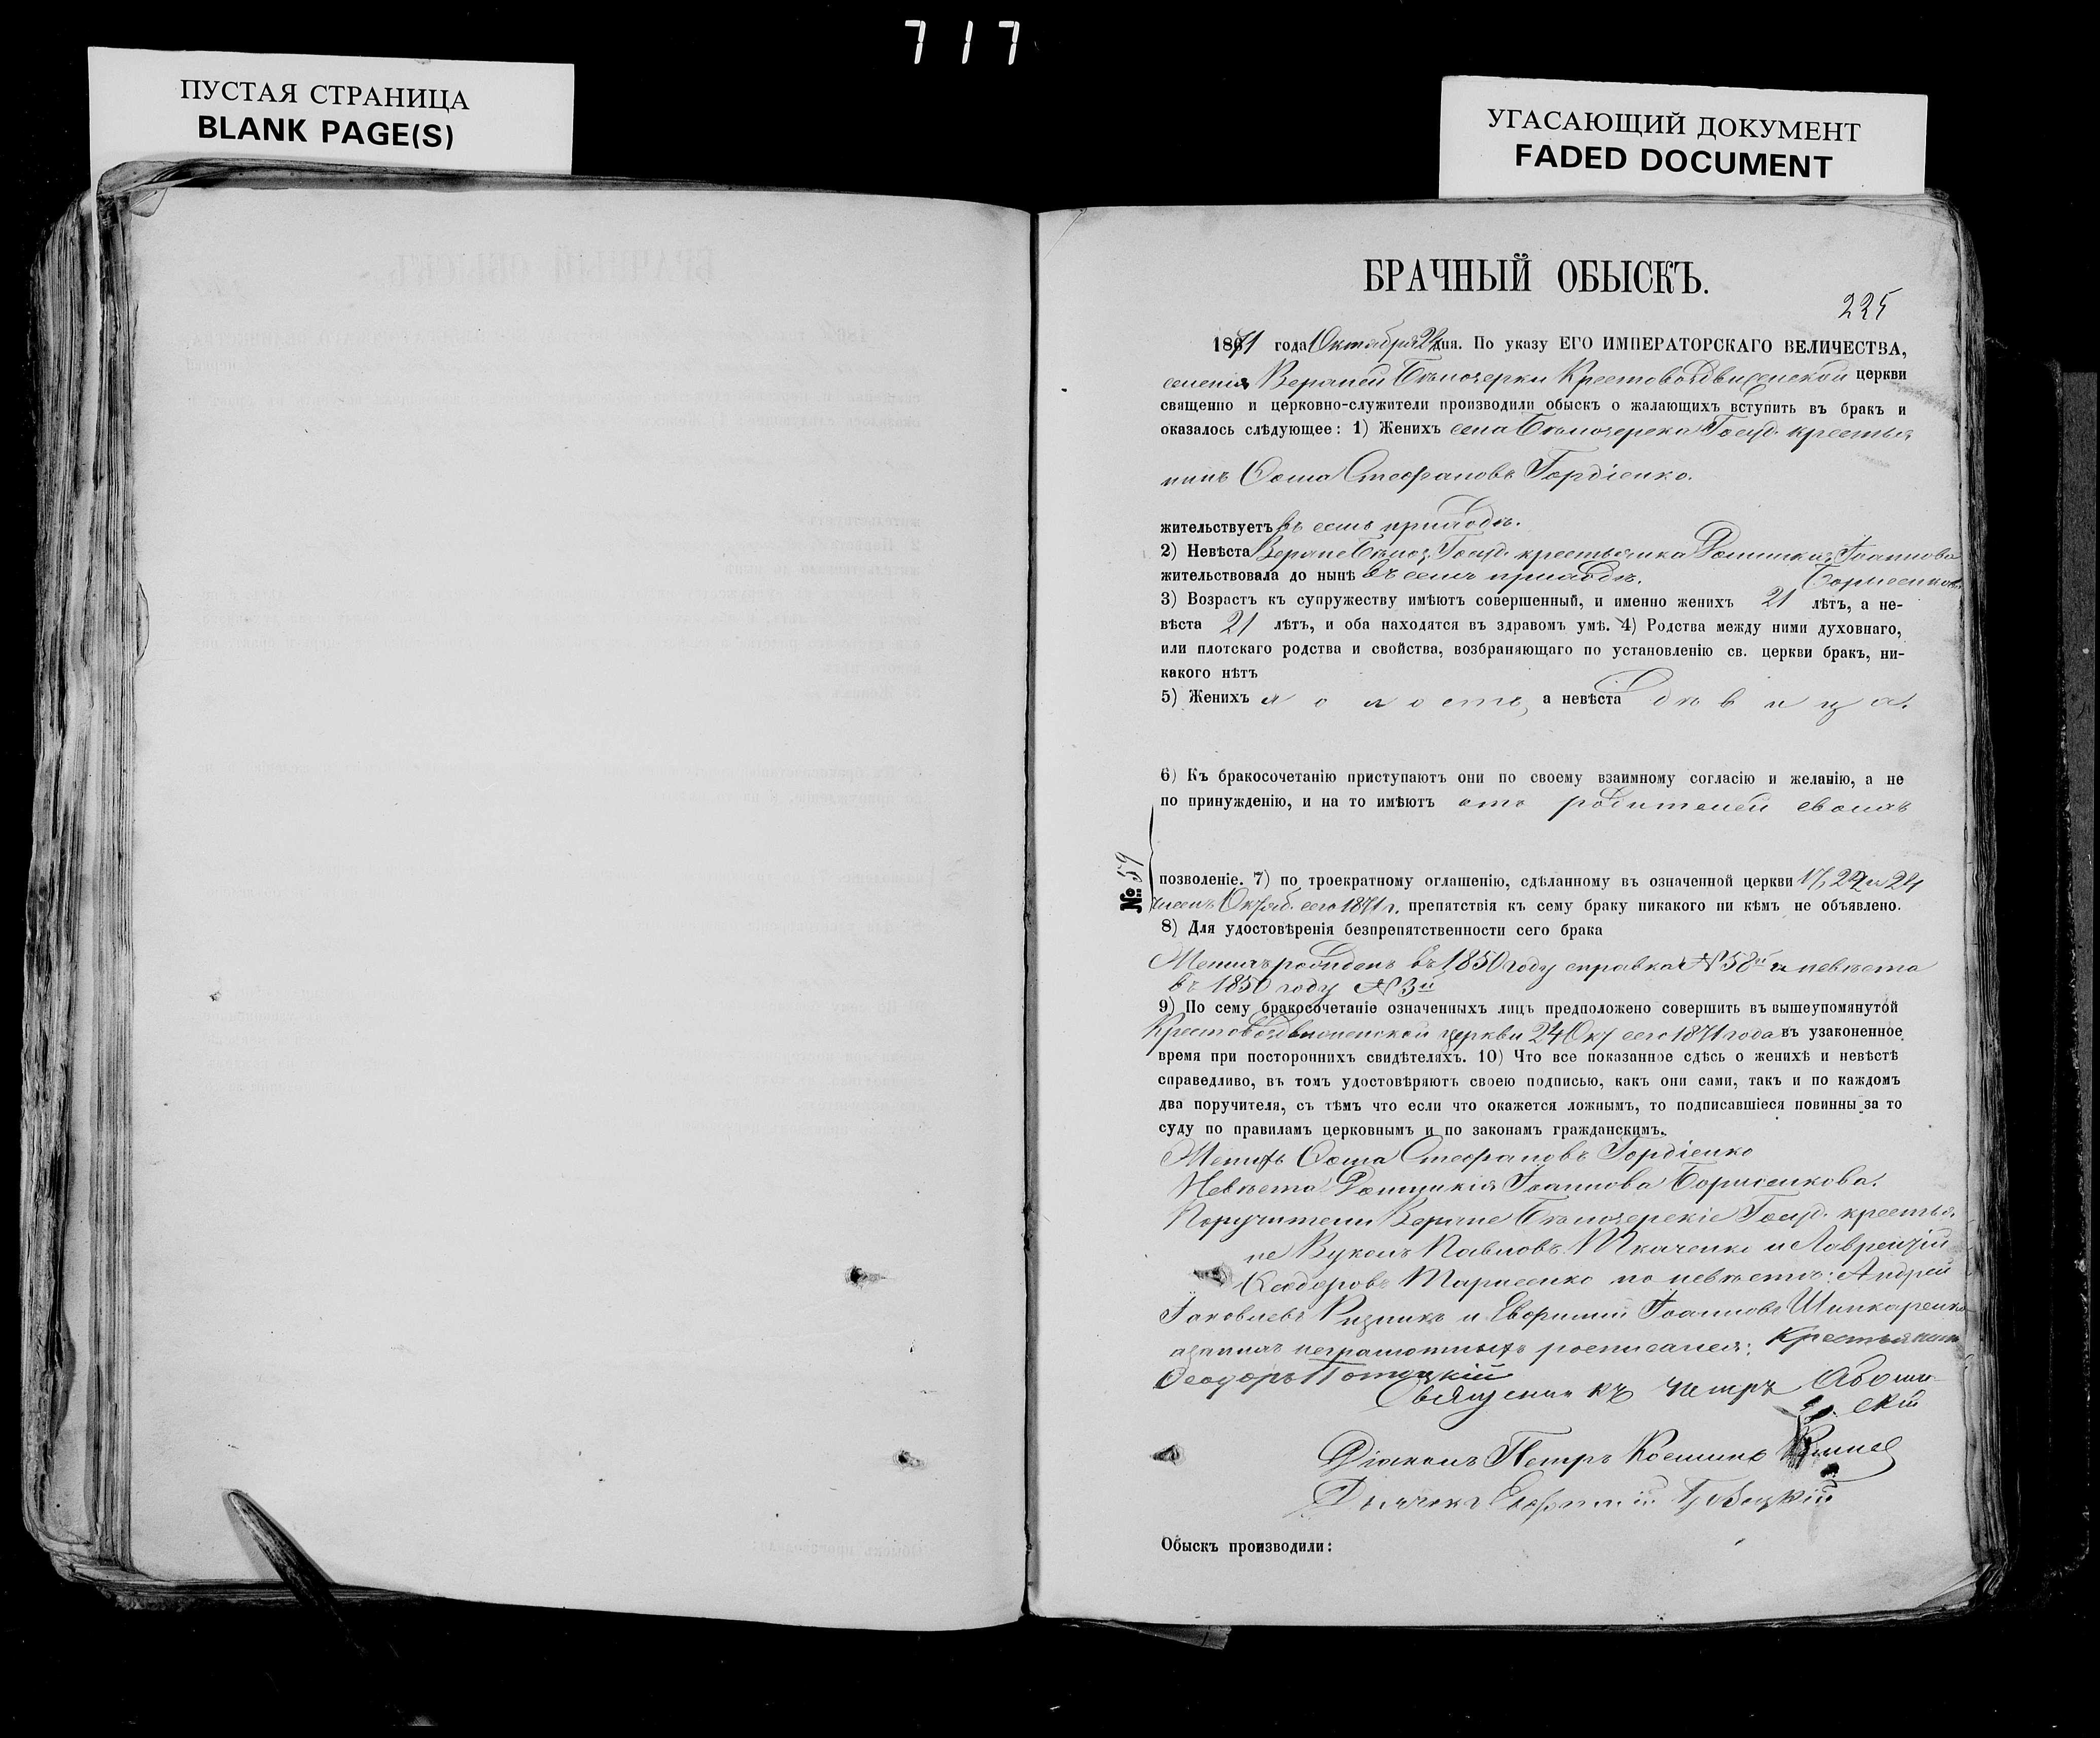 717
ПУСТАЯ СТРАНИЦА
BLANK PAGE(S)
УГАСАЮЩИЙ ДОКУМЕНТ
FADED DOCUMENT
БРАЧНЫЙ ОБЫСКЪ.
225
1871 года Октября 24 дня. По указу ЕГО ИМПЕРАТОРСКАГО ВЕЛИЧЕСТВА,
селенія Верхней Бѣлозерки Крестовоздвиженской церкви
священно и церковно-служители производили обыскъ о жалающихъ вступить въ бракъ и
оказалось слѣдующее: 1) Женихъ села Бѣлозерска Госуд. крестья
нинъ Ѳома Стефановъ Гордіенко.
жительствуетъ въ семъ приходѣ.
2) Невѣста Верхне Бѣлоз. Госуд. крестьянка Домникія Іоаннова
Борисенкова
жительствовала до нынѣ въ семъ приходѣ.
3) Возрастъ къ супружеству имѣютъ совершенный, и именно женихъ 21 лѣтъ, а не-
вѣста 21 лѣтъ, и оба находятся въ здравомъ умѣ. 4) Родства между ними духовнаго,
или плотскаго родства и свойства, возбраняющаго по установленію св. церкви бракъ, ни-
какого нѣтъ
5) Женихъ холостъ, а невѣста дѣвица.
6) Къ бракосочетанію приступаютъ они по своему взаимному согласію и желанію, а не
по принужденію, и на то имѣютъ отъ родителей своихъ
№ 59
позволеніе. 7) по троекратному оглашенію, сдѣланному въ означенной церкви 17, 22 и 24
чисел. Октяб. сего 1871 г. препятствія къ сему браку никакого ни кѣмъ не объявлено.
8) Для удостовѣренія безпрепятственности сего брака
Женихъ рожденъ въ 1850 году справка № 58й а невѣста
въ 1850 году № 3й
9) По сему бракосочетаніе означенныхъ лицъ предположено совершить въ вышеупомянутой
Крестовоздвиженской церкви 24 Окт сего 1871 года въ узаконенное
время при постороннихъ свидѣтеляхъ. 10) Что все показанное сдѣсь о женихѣ и невѣстѣ
справедливо, въ томъ удостовѣряютъ своею подписью, какъ они сами, такъ и по каждомъ
два поручителя, съ тѣмъ что если что окажется ложнымъ, то подписавшіеся повинны за то
суду по правиламъ церковнымъ и по законамъ гражданскимъ.
Женихъ Ѳома Стефановъ Гордіенко
Невѣста Домникія Іоаннова Борисенкова.
Поручители Верхне Бѣлозерскіе Госуд. крестья
не Вуколъ Павловъ Ткаченко и Лаврентій
Ѳеодоровъ Тарасенко по невѣстѣ: Андрей
Іаковлевъ Ризникъ и Евфимій Іоанновъ Шинкаренко
а за нихъ неграмотныхъ росписался: Крестьянин
Ѳеодоръ
Священникъ Петръ
Діаконъ Петръ
Дьячекъ Евфимій
Обыскъ производили: